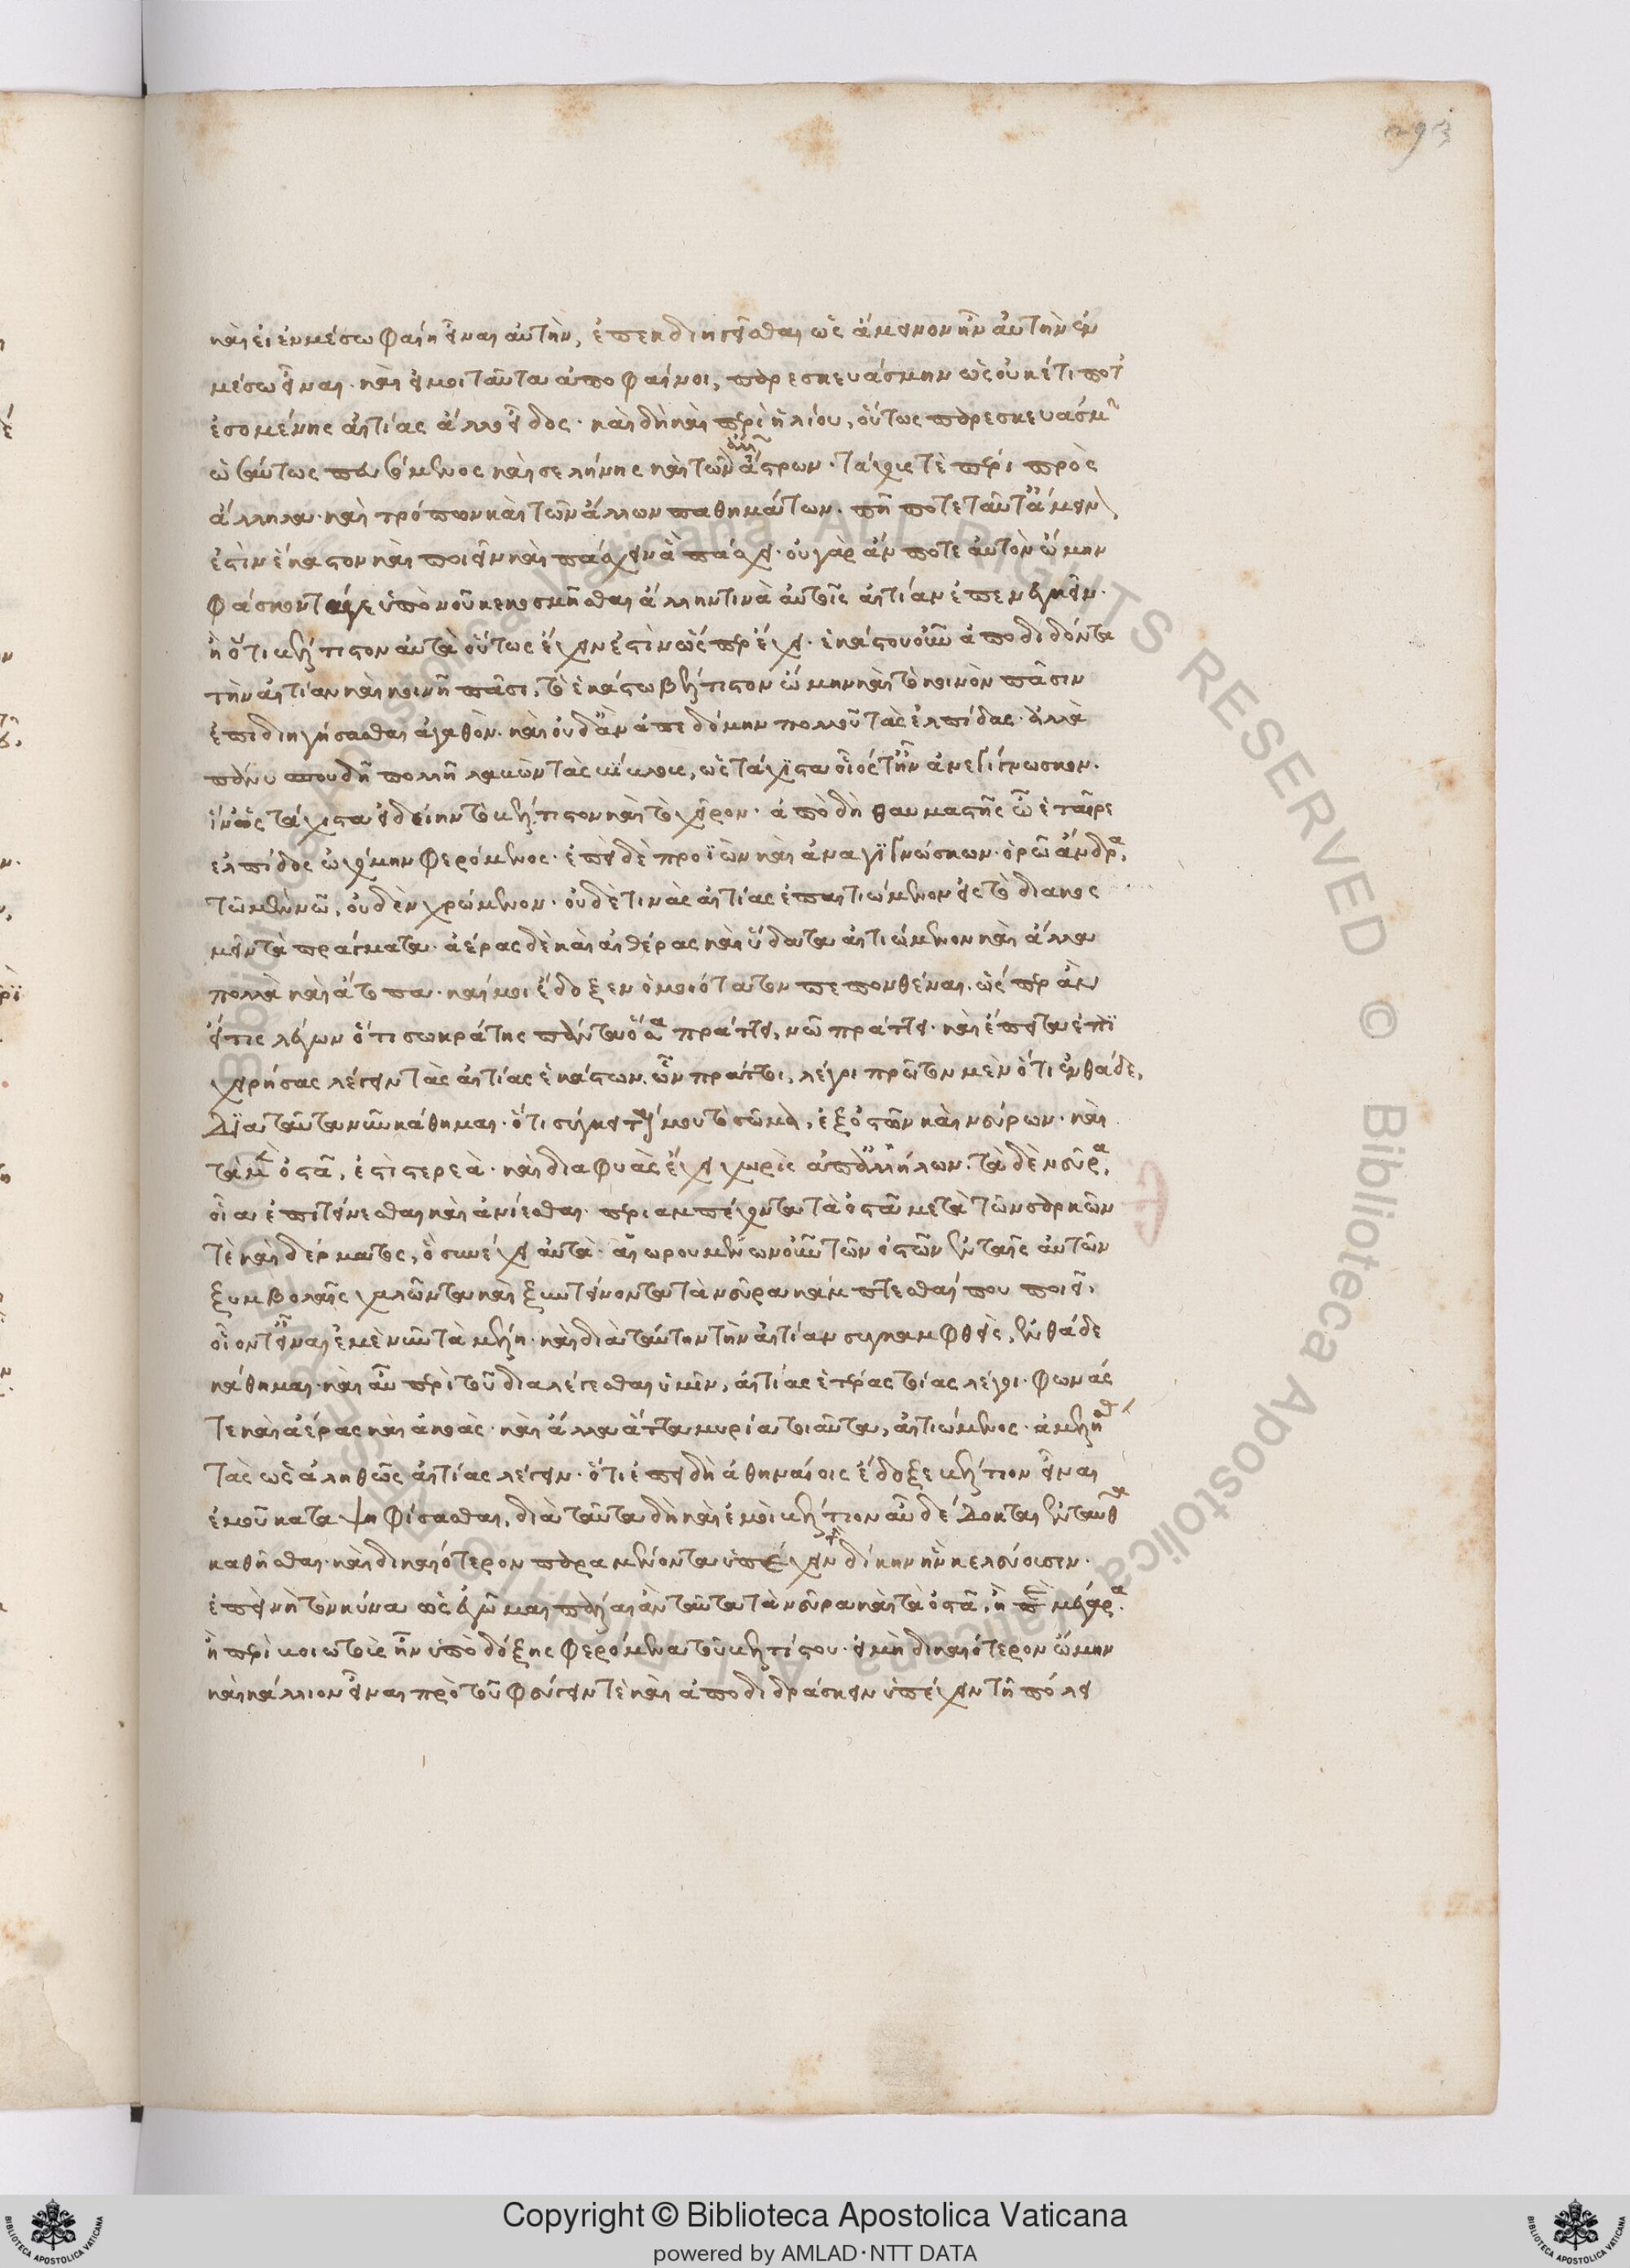 293
καὶ εἰ ἐν μέσω φαίη εἶναι αὐτὴν, ἐπεκδιηγεῖσθαι ὡς ἄμεινον ἦν αὐτὴν ἐν
μέσω εἶναι· καὶ εἴ μοι ταῦτα ἀποφαίνοι, παρεσκευάσμην ὡς οὐκέτι ποτ
ἐσομένης αἰτίας ἄλλο εἶδος· καὶ δὴ καὶ περὶ ἡλίου, οὕτως παρεσκευάσμ
ὡσαύτως πευσόμενος καὶ σελήνης καὶ τῶν ἄλλων ἄστρων· τάχους τὲ περι πρὸς
ἄλληλα· καὶ τρόπων καὶ τῶν ἄλλων παθημάτων· πῆ ποτε ταῦτ ἄμεινόν
ἐστὶν ἕκαστον καὶ ποιεῖν καὶ πάσχειν ἃ πάσχει· οὐ γὰρ ἄν ποτε αὐτὸν ᾤμην
φάσκοντά γε ὑπὸ νοῦ κεκοσμῆσθαι ἄλλην τινὰ αὐτοῖς αἰτίαν ἐπενεγκεῖν·
ἢ ὅτι βέλτιστον αὐτὰ οὕτως ἔχειν ἐστὶν ὥσπερ ἔχει· ἑκάστου οὖν ἀποδιδόντα
τὴν αἰτίαν καὶ κοινῆ πᾶσι, τὸ ἑκάστω βέλτιστον ᾤμην καὶ τὸ κοινὸν πᾶσιν
ἐπιδιηγήσασθαι ἀγαθὸν· καὶ οὐδ ἂν ἀπεδόμην πολλοῦ τὰς ἐλπίδας· ἀλλὰ
πάνυ σπουδῆ πολλῆ λαβὼν τὰς βίβλους, ὡς τάχιστα οἷός τ ἦν ἀνεγίγνωσκον·
ἵν ὡς τάχιστα εἰδείην τὸ βέλτιστον καὶ τὸ χεῖρον· ἀπὸ δὴ θαυμαστῆς ὦ ἑταῖρε
ἐλπίδος ᾠχόμην φερόμενος· ἐπειδὲ προϊὼν καὶ ἀναγιγνώσκων· ὁρῶ ἄνδρα
τῶ μὲν νῶ, οὐδὲν χρώμενον· οὐδέ τινὰς αἰτίας ἐπαιτιώμενον εἰς τὸ διακος
μεῖν τὰ πράγματα· ἀέρας δὲ καὶ αἰθέρας καὶ ὕδατα αἰτιώμενον καὶ ἄλλα
πολλὰ καὶ ἄτοπα· καί μοι ἔδοξεν ὁμοιότατον πεπονθέναι· ὥσπερ ἂν
εἴ τις λέγων ὅτι σωκράτης πάντα ὅσα πράττει, νῶ πράττει· καὶ ἔπειτα ἐπι
χειρήσας λέγειν τὰς αἰτίας ἑκάστων ὧν πράττω, λέγοι πρῶτον μὲν ὅτι ἐνθάδε,
διὰ ταῦτα νῦν κάθημαι· ὅτι σύγκειταί μου τὸ σῶμα, ἐξ ὀστῶν καὶ νεύρων· καὶ
τὰ μὲν ὀστᾶ, ἐστὶ στερεὰ· καὶ διαφυὰς ἔχει χωρὶς ἀπ ἀλλήλων· τὰ δὲ νεῦρα,
οἷα ἐπιτείνεσθαι καὶ ἀνίεσθαι· περιαμπέχοντα τὰ ὀστᾶ μετὰ τῶν σαρκῶν
τὲ καὶ δέρματος, ὃ συνέχει αὐτὰ· αἰωρουμένων οὖν τῶν ὀστῶν ἐν ταῖς αὐτῶν
ξυμβολαῖς χαλῶντα καὶ ξυντείνοντα τὰ νεῦρα κάμπτεσθαί που ποιεῖ,
οἷόν τ εἶναι ἐμὲ νῦν τὰ μέλη· καὶ διὰ ταύτην τὴν αἰτίαν συγκαμφθεὶς, ἐνθάδε
κάθημαι· καὶ αὖ περὶ τοῦ διαλέγεσθαι ὑμῖν, αἰτίας ἑτέρας τοίας λέγοι· φωνάς
τε καὶ ἀέρας καὶ ἀκοὰς· καὶ ἄλλα ἄττα μυρία τοιαῦτα, αἰτιώμενος· ἀμελή
τὰς ὡς ἀληθῶς αἰτίας λέγειν· ὅτι ἐπειδὴ ἀθηναίοις ἔδοξε βέλτιον εἶναι
ἐμοῦ καταψηφίσασθαι, διὰ ταῦτα δὴ καὶ ἐμοὶ βέλτιον αὖ δέδοκται ἐνταῦθα
καθῆσθαι· καὶ δικαιότερον παραμένοντα ὑπέχειν δίκην ἣν κελεύσωσιν·
ἐπεὶ νὴ τὸν κύνα ὡς ἐγῶμαι πάλαι ἂν ταῦτα τὰ νεῦρα καὶ τὰ ὀστᾶ, ἢ περὶ μέγαρα
ἢ περὶ βοιωτοὺς ἦν ὑπὸ δόξης φερόμενα τοῦ βελτίστου· εἰ μὴ δικαιότερον ᾤμην
καὶ κάλλιον εἶναι πρὸ τοῦ φεύγειν τὲ καὶ ἀποδιδράσκειν ὑπέχειν τῆ πόλει
© Biblioteca Apostolica Vaticana ALL RIGHTS RESERVED © Biblioteca Apostolica Vaticana ALL RIGHTS RESERVED
Copyright © Biblioteca Apostolica Vaticana
powered by AMLAD·NTT DATA
BIBLIOTECA APOSTOLICA VATICANA
BIBLIOTECA APOSTOLICA VATICANA